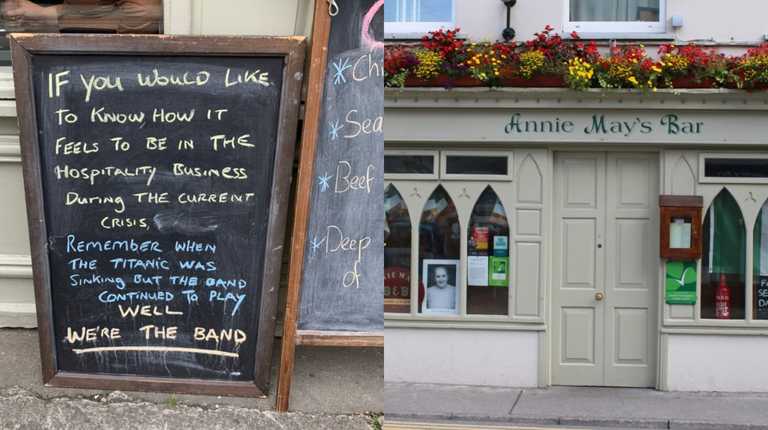 IF YOU WOULD LIKE
TO KNOW, HOW IT
FEELS TO BE IN THE
HOSPITALITY BUSINESS
DURING THE CURRENT
CRISIS,
REMEMBER WHEN
THE TITANIC WAS
SINKING BUT THE BAND
CONTINUED TO PLAY
WELL
WE'RE THE BAND
Sea
Beef
Deep
of
Annie May's Bar